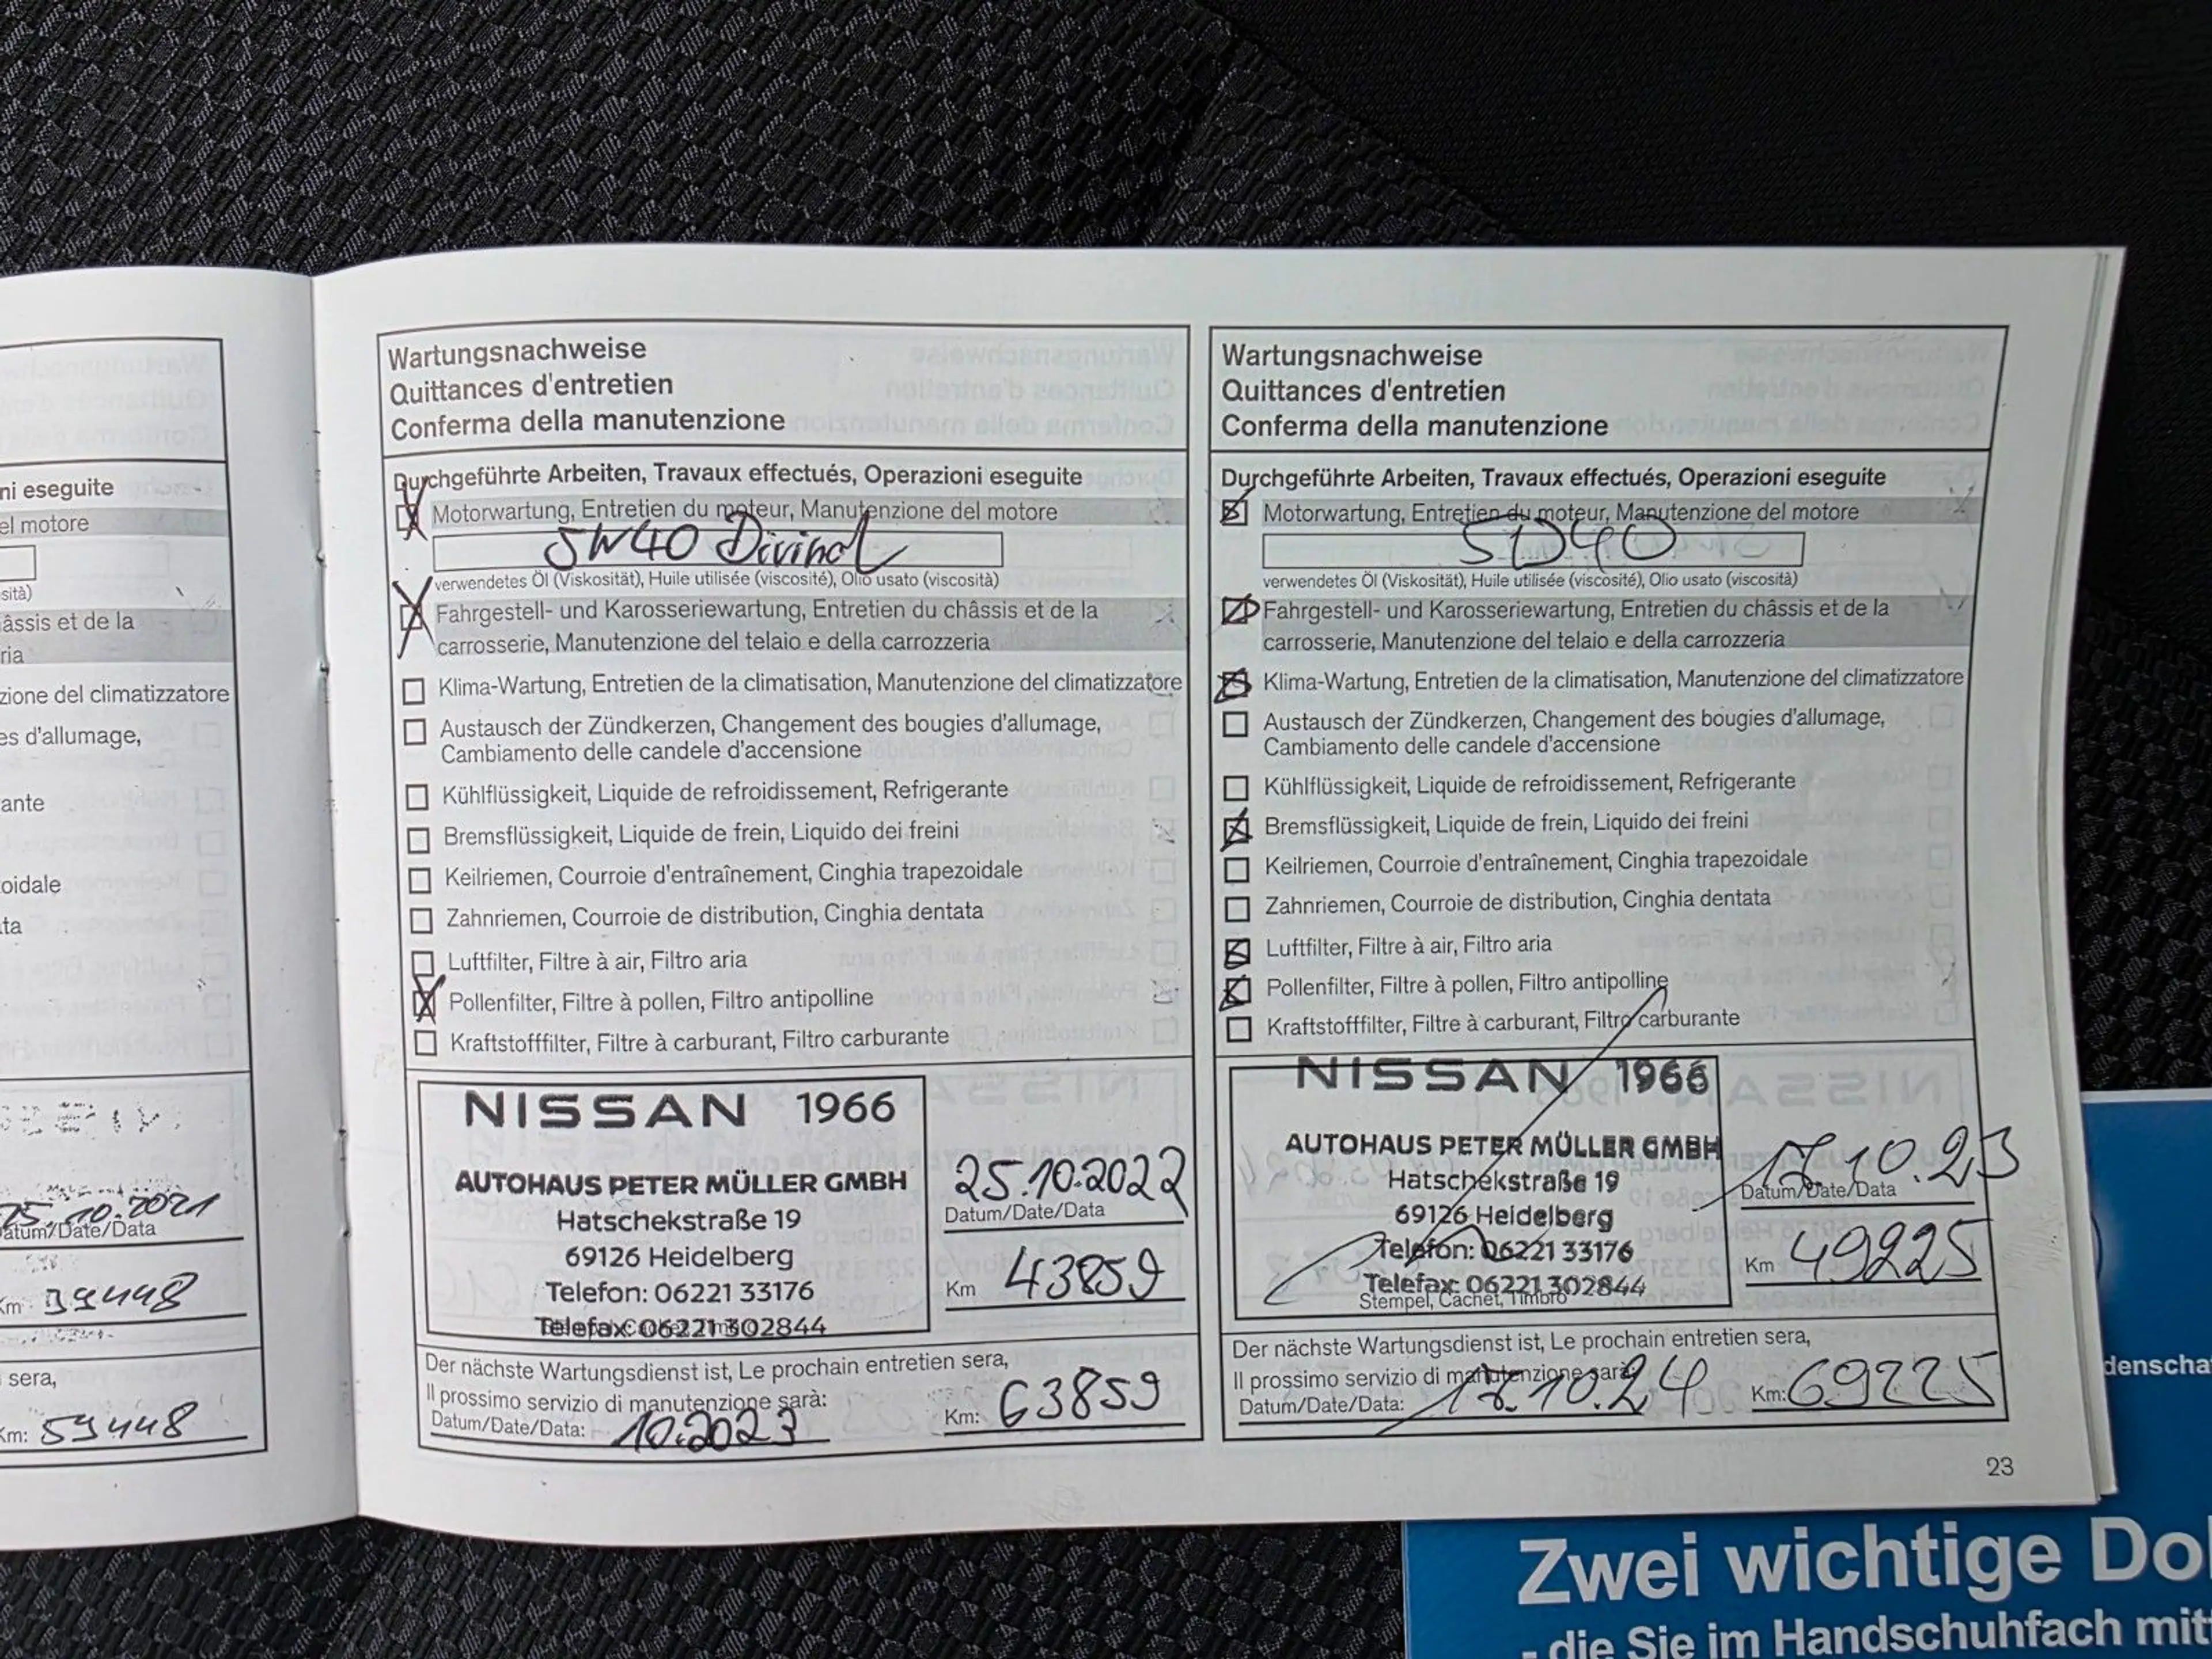 ni eseguite
el motore
sità)
âssis et de la
ria
zione del climatizzatore
es d'allumage,
ante
oidale
ta
25.10.2021
Datum/Date/Data
Km 39448
sera,
Km: 59448
Wartungsnachweise
Quittances d'entretien
Conferma della manutenzione
Durchgeführte Arbeiten, Travaux effectués, Operazioni eseguite
Motorwartung, Entretien du moteur, Manutenzione del motore
5W40 Divinol
verwendetes Öl (Viskosität), Huile utilisée (viscosité), Olio usato (viscosità)
Fahrgestell- und Karosseriewartung, Entretien du châssis et de la
carrosserie, Manutenzione del telaio e della carrozzeria
Klima-Wartung, Entretien de la climatisation, Manutenzione del climatizzatore
Austausch der Zündkerzen, Changement des bougies d'allumage,
Cambiamento delle candele d'accensione
Kühlflüssigkeit, Liquide de refroidissement, Refrigerante
Bremsflüssigkeit, Liquide de frein, Liquido dei freini
Keilriemen, Courroie d'entraînement, Cinghia trapezoidale
Zahnriemen, Courroie de distribution, Cinghia dentata
Luftfilter, Filtre à air, Filtro aria
Pollenfilter, Filtre à pollen, Filtro antipolline
Kraftstofffilter, Filtre à carburant, Filtro carburante
NISSAN 1966
AUTOHAUS PETER MÜLLER GMBH
Hatschekstraße 19
69126 Heidelberg
Telefon: 06221 33176
Telefax: 06221 302844
25.10.2022
Datum/Date/Data
Km 43859
Der nächste Wartungsdienst ist, Le prochain entretien sera,
Il prossimo servizio di manutenzione sarà:
Datum/Date/Data: 10.2023 Km: 63859
Wartungsnachweise
Quittances d'entretien
Conferma della manutenzione
Durchgeführte Arbeiten, Travaux effectués, Operazioni eseguite
Motorwartung, Entretien du moteur, Manutenzione del motore
5D40
verwendetes Öl (Viskosität), Huile utilisée (viscosité), Olio usato (viscosità)
Fahrgestell- und Karosseriewartung, Entretien du châssis et de la
carrosserie, Manutenzione del telaio e della carrozzeria
Klima-Wartung, Entretien de la climatisation, Manutenzione del climatizzatore
Austausch der Zündkerzen, Changement des bougies d'allumage,
Cambiamento delle candele d'accensione
Kühlflüssigkeit, Liquide de refroidissement, Refrigerante
Bremsflüssigkeit, Liquide de frein, Liquido dei freini
Keilriemen, Courroie d'entraînement, Cinghia trapezoidale
Zahnriemen, Courroie de distribution, Cinghia dentata
Luftfilter, Filtre à air, Filtro aria
Pollenfilter, Filtre à pollen, Filtro antipolline
Kraftstofffilter, Filtre à carburant, Filtro carburante
NISSAN 1966
AUTOHAUS PETER MÜLLER GMBH
Hatschekstraße 19
69126 Heidelberg
Telefon: 06221 33176
Telefax: 06221 302844
Stempel, Cachet, Timbro
17.10.23
Datum/Date/Data
Km 49225
Der nächste Wartungsdienst ist, Le prochain entretien sera,
Il prossimo servizio di manutenzione sarà:
Datum/Date/Data: 17.10.24 Km: 69225
23
denscha
Zwei wichtige Do
- die Sie im Handschuhfach mit